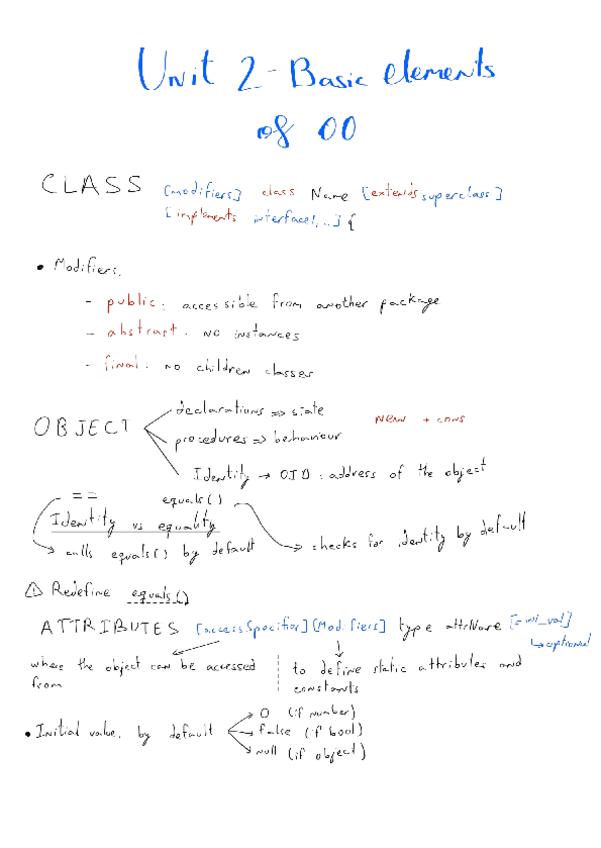 Unit 2 - Basic elements
of OO
CLASS [modifiers] class Name [extends superclass]
[implements interface1,...] {
• Modifiers.
- public: accessible from another package
- abstract: no instances
- final: no children classes
OBJECT
declarations => state
procedures => behaviour
Identity → OID: address of the object
new + cons
== equals()
Identity vs equality
calls equals() by default
checks for identity by default
⚠ Redefine equals()
ATTRIBUTES [accessSpecifier] [Modifiers] type attrName [= ini_val]
optional
where the object can be accessed
from
to define static attributes and
constants
• Initial value, by default
0 (if number)
false (if bool)
null (if object)